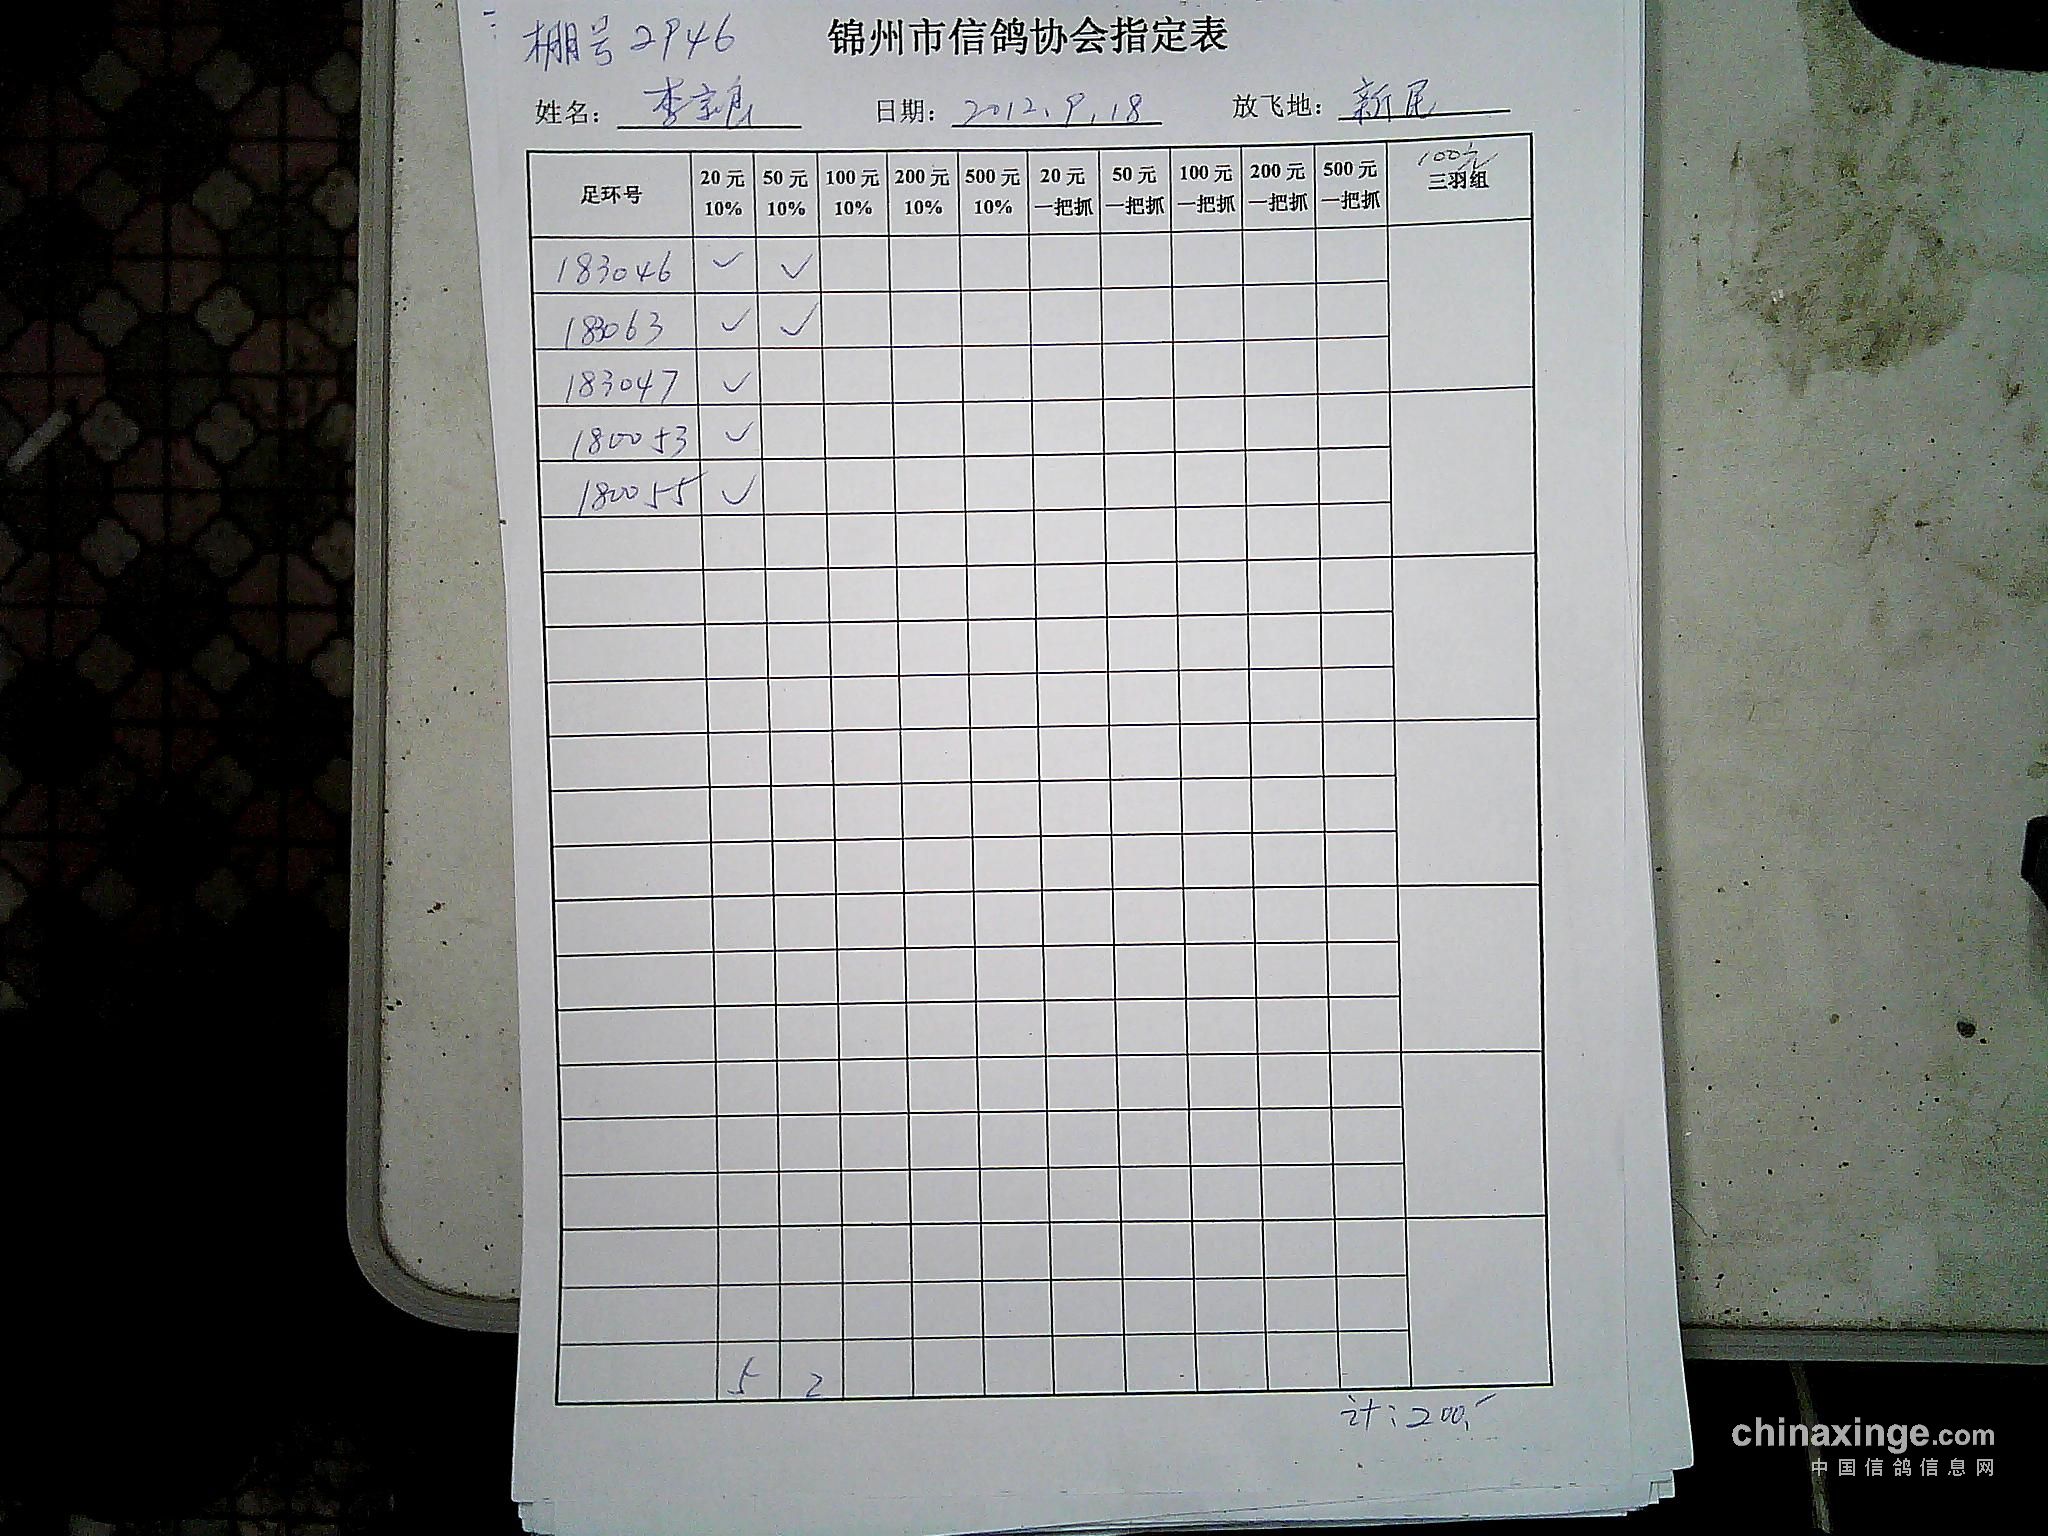 棚号 2946
锦州市信鸽协会指定表
姓名： 李宗良 日期： 2012.9.18 放飞地： 新民
足环号 20元10% 50元10% 100元10% 200元10% 500元10% 20元一把抓 50元一把抓 100元一把抓 200元一把抓 500元一把抓 100元三羽组
183046 ✓ ✓
183063 ✓ ✓
183047 ✓
180053 ✓
180055 ✓
5 2
计：200.
chinaxinge.com
中国信鸽信息网